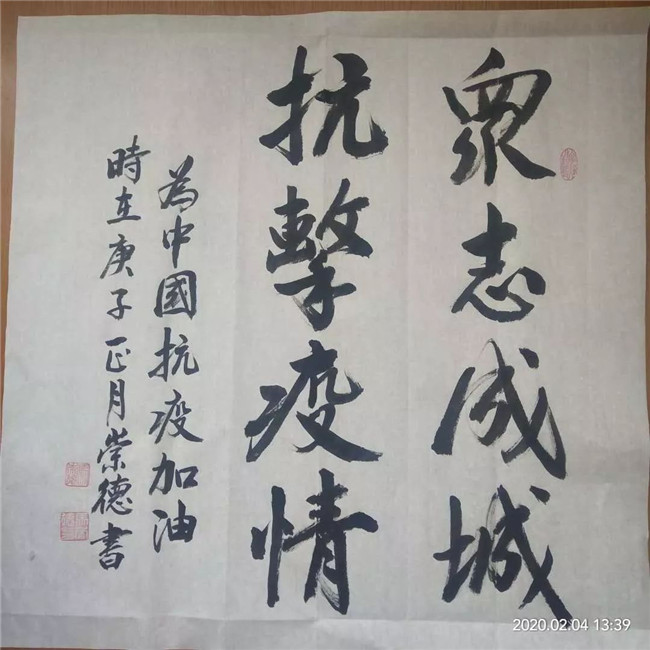 眾志成城
抗擊疫情
為中國抗疫加油
時在庚子正月崇德書
2020.02.04 13:39